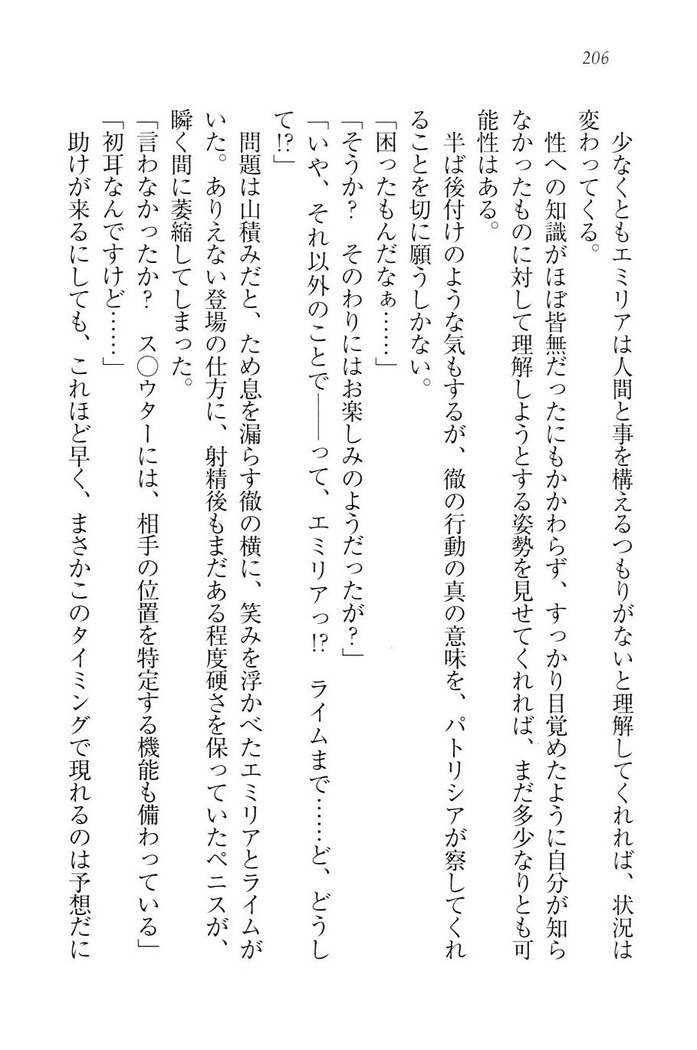 206
少なくともエミリアは人間と事を構えるつもりがないと理解してくれれば、状況は
変わってくる。
性への知識がほぼ皆無だったにもかかわらず、すっかり目覚めたように自分が知ら
なかったものに対して理解しようとする姿勢を見せてくれれば、まだ多少なりとも可
能性はある。
半ば後付けのような気もするが、徹の行動の真の意味を、パトリシアが察してくれ
ることを切に願うしかない。
「困ったもんだなぁ……」
「そうか？　そのわりにはお楽しみのようだったが？」
「いや、それ以外のことで――って、エミリアっ!?　ライムまで……ど、どうし
て!?」
問題は山積みだと、ため息を漏らす徹の横に、笑みを浮かべたエミリアとライムが
いた。ありえない登場の仕方に、射精後もまだある程度硬さを保っていたペニスが、
瞬く間に萎縮してしまった。
「言わなかったか？　ス〇ウターには、相手の位置を特定する機能も備わっている」
「初耳なんですけど……」
助けが来るにしても、これほど早く、まさかこのタイミングで現れるのは予想だに